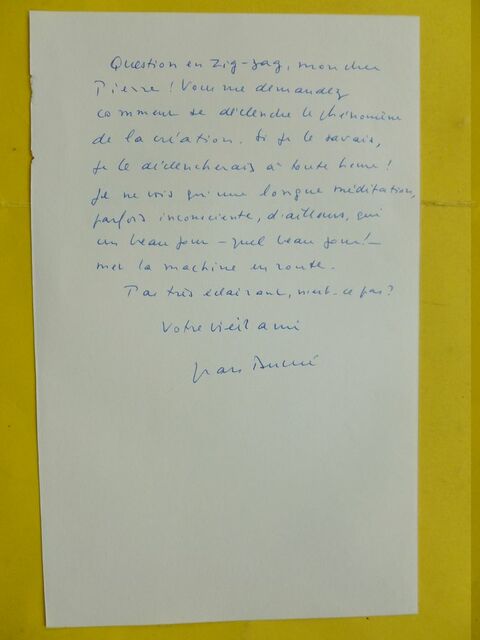 Question en zig-zag, mon cher
Pierre ! Vous me demandez
comment se déclenche le phénomène
de la création. Si je le savais,
je le déclencherais à toute heure !
Je ne vois qu'une longue méditation,
parfois inconsciente, d'ailleurs, qui
un beau jour – quel beau jour ! –
met la machine en route.
Pas très éclairant, n'est-ce pas ?
Votre vieil ami
Jean